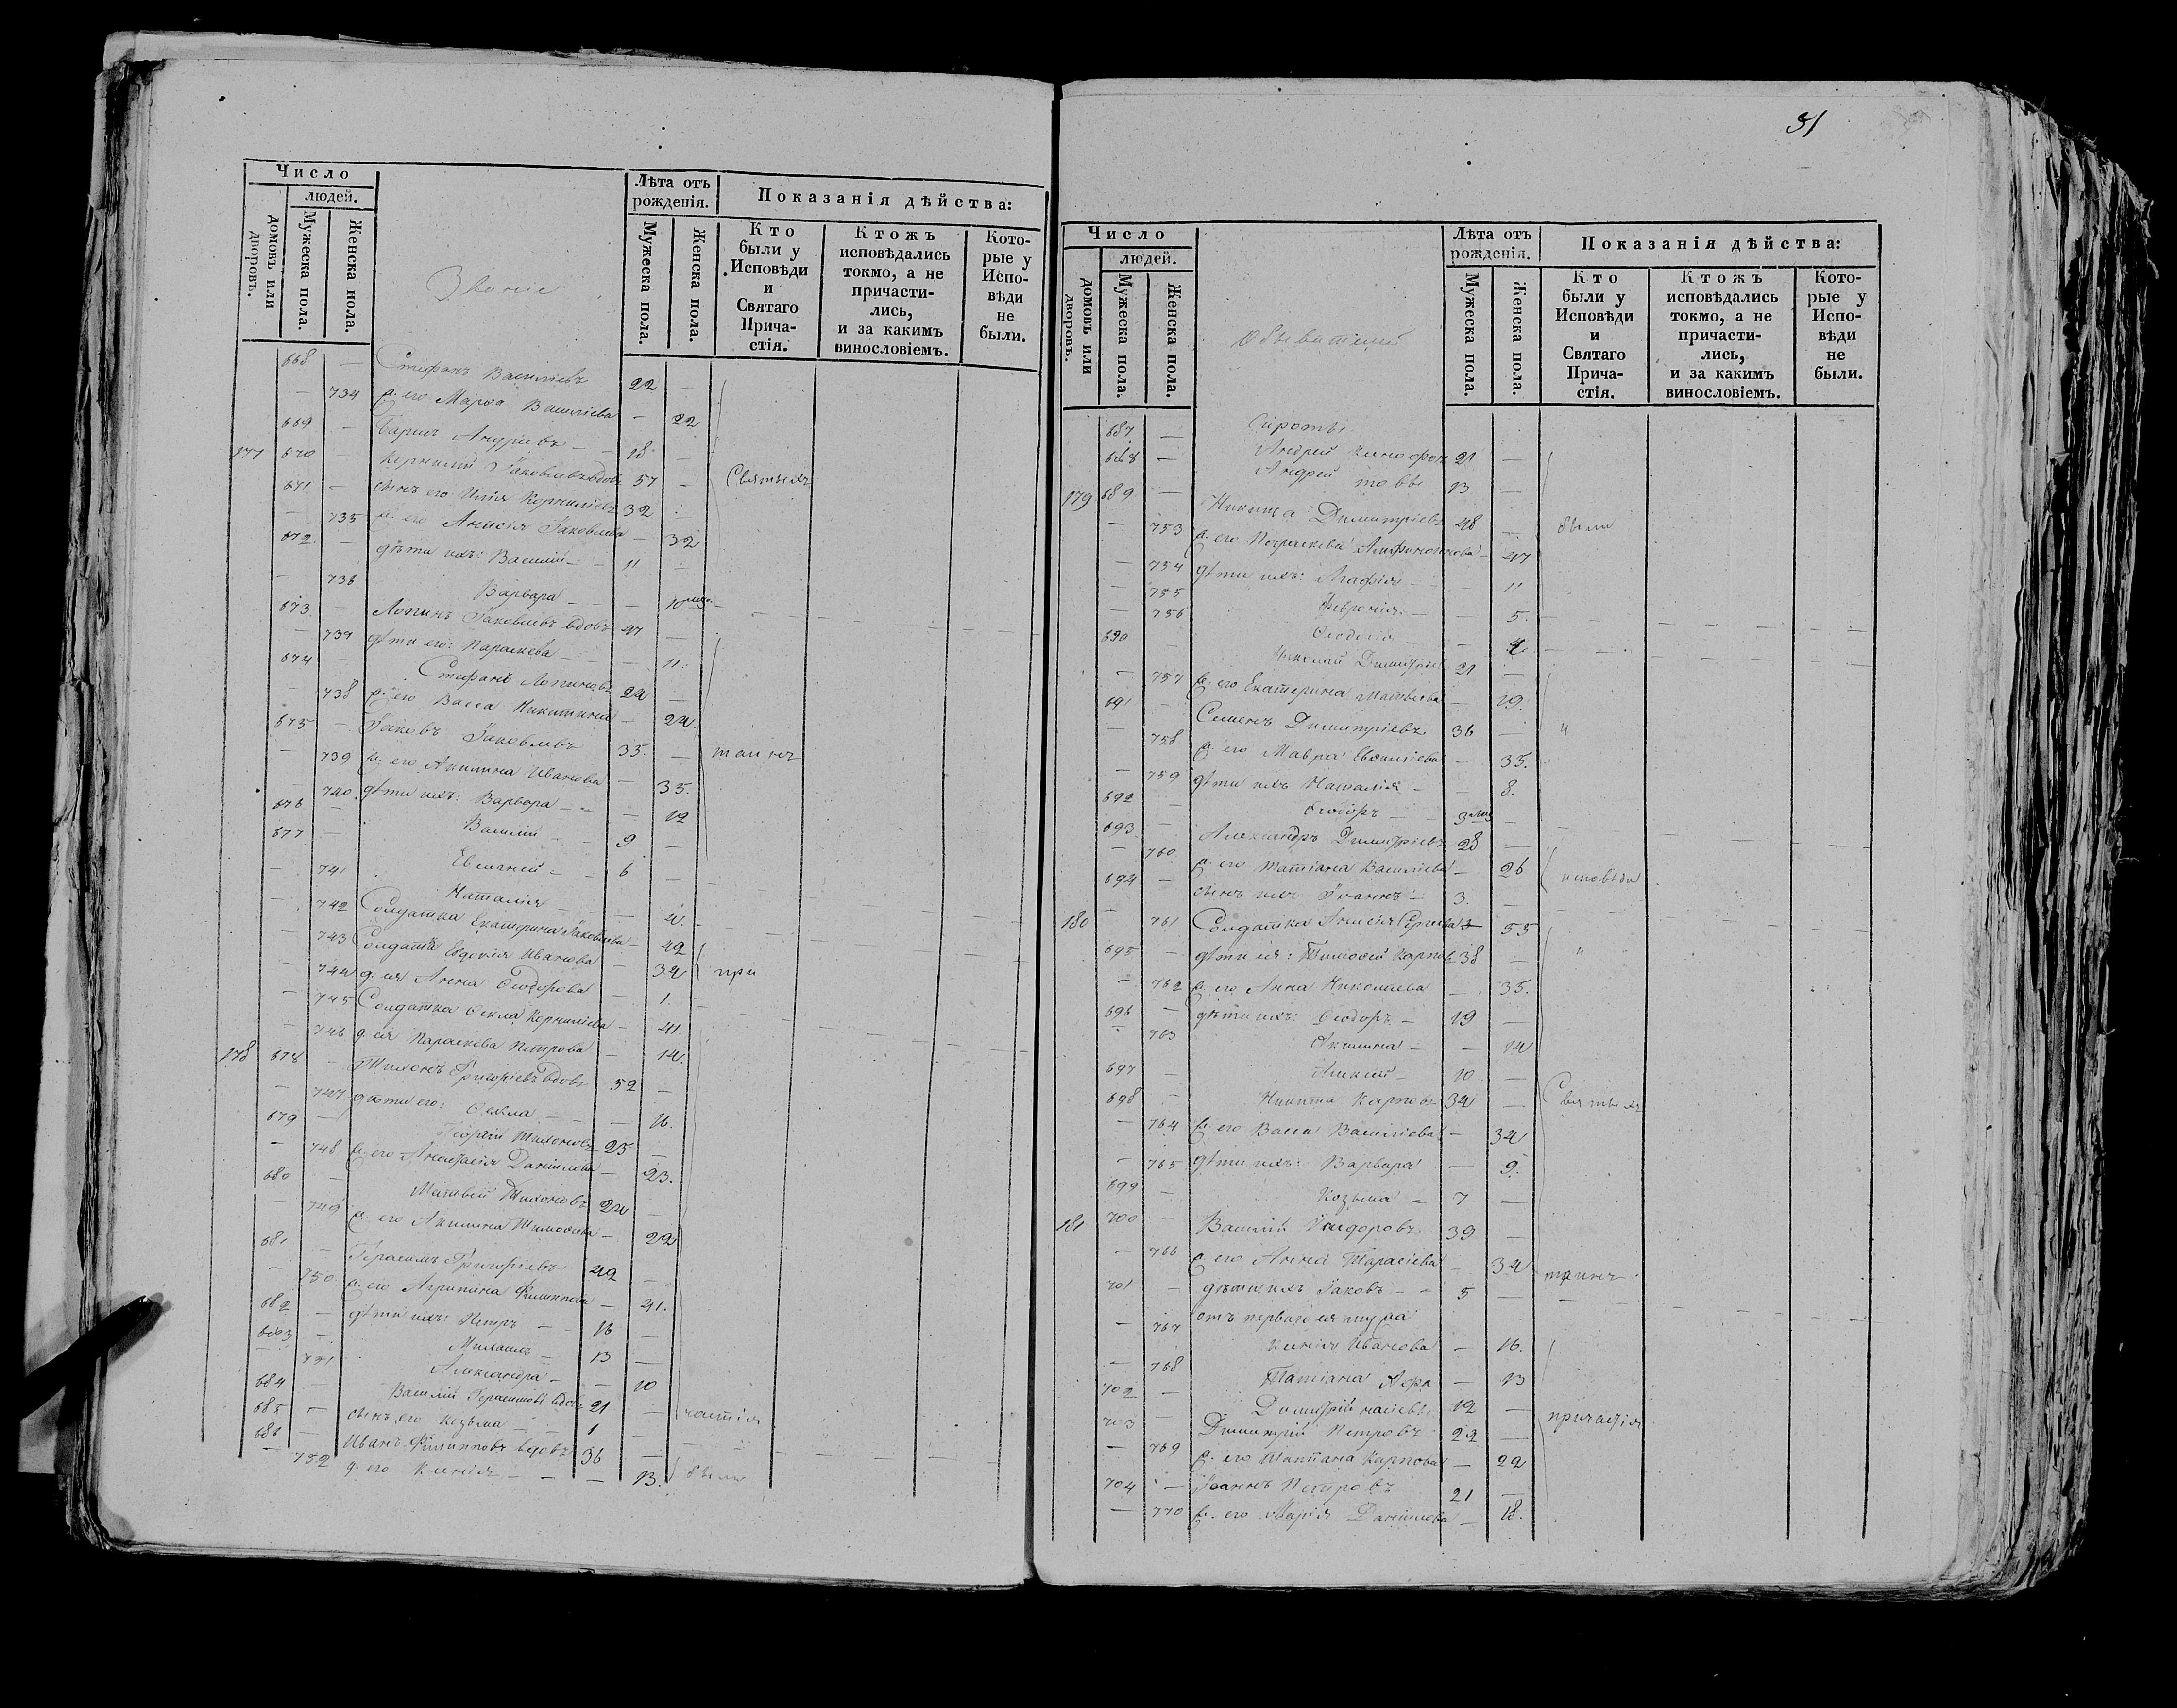 Число
людей.
домовъ или дворовъ.
Мужеска пола.
Женска пола.
Званіе
Лѣта отъ рожденія.
Мужеска пола.
Женска пола.
Показанія дѣйства:
Кто были у Исповѣди и Святаго Причастія.
Ктожъ исповѣдались токмо, а не причастились, и за какимъ винословіемъ.
Которые у Исповѣди не были.
668 — Стефанъ Василіевъ 22 —
— 734 ж. его Марѳа Василіева — 22
669 — Андреевъ — 18
177 670 — Корнилій Іаковлевъ вдовъ 57 — Святыхъ
671 — сынъ его Илія Корниліевъ 32
— 735 ж. его Анисія Іаковлева — 32
672 — дѣти ихъ: Василій — 11 —
— 736 Варвара — — 10 мѣс.
673 — Логинъ Іаковлевъ вдовъ 47 —
— 737 дѣти его: Параскева — — 11.
674 — Стефанъ Логиновъ 24 —
— 738 ж. его Васса Никитина — 24.
675 — Іаковъ Іаковлевъ 35. — таинъ
— 739 ж. его Акилина Иванова — 35.
— 740 дѣти ихъ: Варвара — — 12
676 — Василій — 9 —
677 — Евгеній — 6 —
— 741 Наталія — — 4.
— 742 Солдатка Екатерина Іаковлева — 42
— 743 Солдатка Евдокія Иванова — 34 при
— 744 д. ея Анна Ѳеодорова — 1.
— 745 Солдатка Ѳекла Корниліева — 41.
— 746 д. ея Параскева Петрова — 14.
178 678 — Тихонъ Григоріевъ вдовъ 52 —
— 747 дѣти его: Ѳекла — — 16.
679 — Георгій Тихоновъ 25 —
— 748 ж. его Анастасія Даніилова — 23.
680 — Матвей Тихоновъ 24 —
— 749 ж. его Акилина Тимоѳеева — 22
681 — Герасимъ Григоріевъ 42 —
— 750 ж. его Агрипина Филиппова — 41.
682 — дѣти ихъ: Петръ — 16 —
683 — Михаилъ — 13 —
— 751 Александра — — 10
684 — Василій Герасимовъ вдовъ 21 — частія
685 — сынъ его Козьма — 1 —
686 — Иванъ Филипповъ вдовъ 36 —
— 752 д. его Ксенія — — 13. были
31
Число
людей.
домовъ или дворовъ.
Мужеска пола.
Женска пола.
Обывателей
Лѣта отъ рожденія.
Мужеска пола.
Женска пола.
Показанія дѣйства:
Кто были у Исповѣди и Святаго Причастія.
Ктожъ исповѣдались токмо, а не причастились, и за какимъ винословіемъ.
Которые у Исповѣди не были.
Сироты
687 — Андрей Ксенофон 21 —
688 — Андрей товы 13 —
179 689 — Никита Димитріевъ 48 — были
— 753 ж. его Параскева — 47
— 754 дѣти ихъ: Агафія — — 11
— 755 Февронія — — 5.
— 756 Ѳеодосія — — 4
690 — Николай Димитріевъ 21 —
— 757 ж. его Екатерина Матвѣева — 19.
691 — Семенъ Димитріевъ 36 — "
— 758 ж. его Мавра Василіева — 35.
— 759 дѣти ихъ Наталія — — 8.
692 — Ѳеодоръ — 3 мѣс —
693 — Александръ Димитріевъ 28 —
— 760 ж. его Татіана Василіева — 26 исповѣди
694 — сынъ ихъ Іоаннъ — 3. —
180 — 761 Солдатка Анисія Сергиева — 55
695 — дѣти ея: Тимоѳей Карповъ 38 — "
— 762 ж. его Анна Николаева — 35.
696 — дѣти ихъ: Ѳеодоръ — 19 —
— 763 Акилина — — 14
697 — Алексій — 10 —
698 — Никита Карповъ 34 — Святыхъ
— 764 ж. его Васса Василіева — 34
— 765 дѣти ихъ: Варвара — 9.
699 — Козьма — 7 —
181 700 — Василій Исидоровъ 39 —
— 766 ж. его Анна Тарасіева — 34 таинъ
701 — дѣти ихъ Іаковъ — 5 —
отъ перваго ея мужа
— 767 Ксенія Иванова — 16.
— 768 Татіана Афа — 13
702 — Димитрій насіевы 12 — причастія
703 — Димитрій Петровъ 22 —
— 769 ж. его Татіана Карпова — 22
704 — Іоаннъ Петровъ 21 —
— 770 ж. его Марія Даніилова — 18.